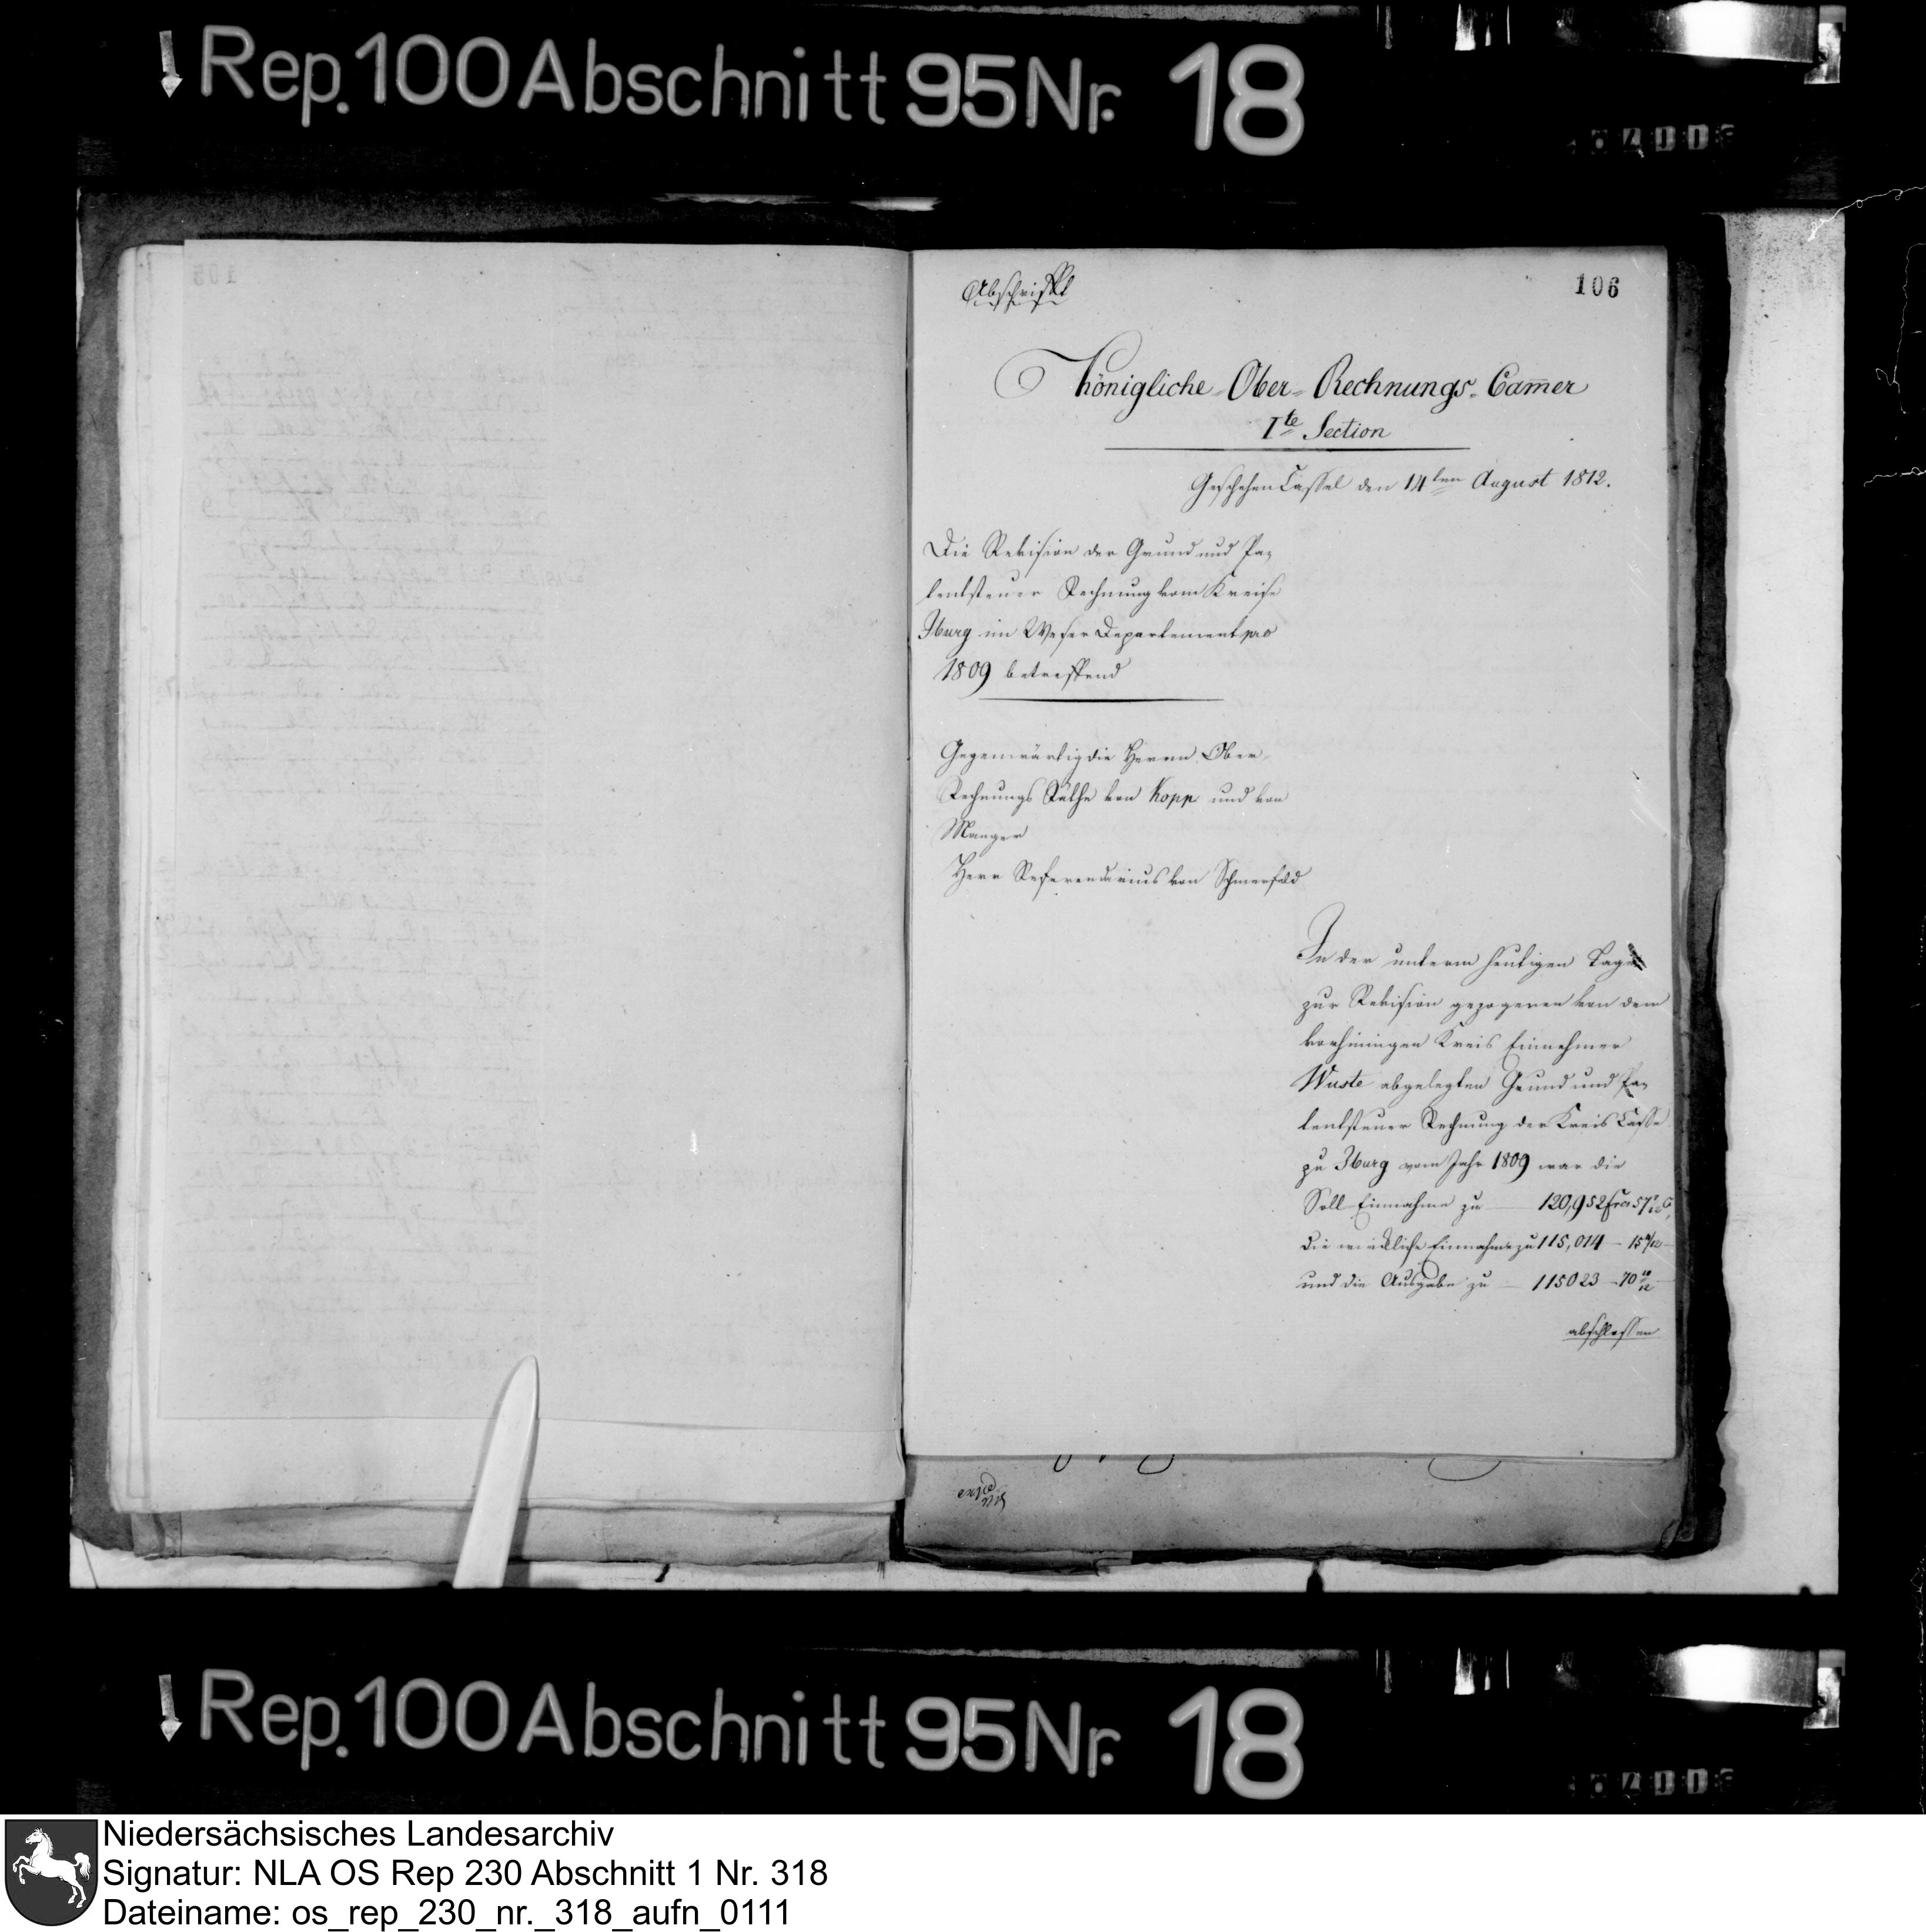 Rep. 100 Abschnitt 95 Nr. 18
106
Abschrifft
Königliche Ober-Rechnungs-Cam̄er
Ite Section
Geschehen Cassel den 14ten August 1812.
Die Revision der Grund und Pa-
tentsteuer Rechnung vom Kreise
Iburg im Weser Departement pro
1809 betreffend
Gegenwärtig die Herrn Ober-
Rechnungs Räthe von Kopp und von
Manger
Herr Referendarius von Schmerfeld
In der unterm heutigen Tage
zur Revision gezogenen von dem
vorhinnigen Kreis Einnehmer
Wuste abgelegten Grund und Pa-
tentsteuer Rechnung der Kreis Casse
zu Iburg vom Jahr 1809 war die
Soll Einnahme zu 120,952 frcs 57
die wirckliche Einnahme zu 115,014 - 15
und die Ausgabe zu 115023 - 70 10/12
abschlossen
Rep. 100 Abschnitt 95 Nr. 18
Niedersächsisches Landesarchiv
Signatur: NLA OS Rep 230 Abschnitt 1 Nr. 318
Dateiname: os_rep_230_nr._318_aufn_0111